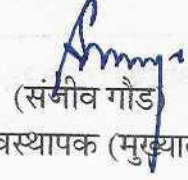 (संजीव गौड)
वस्थापक (मुख्या